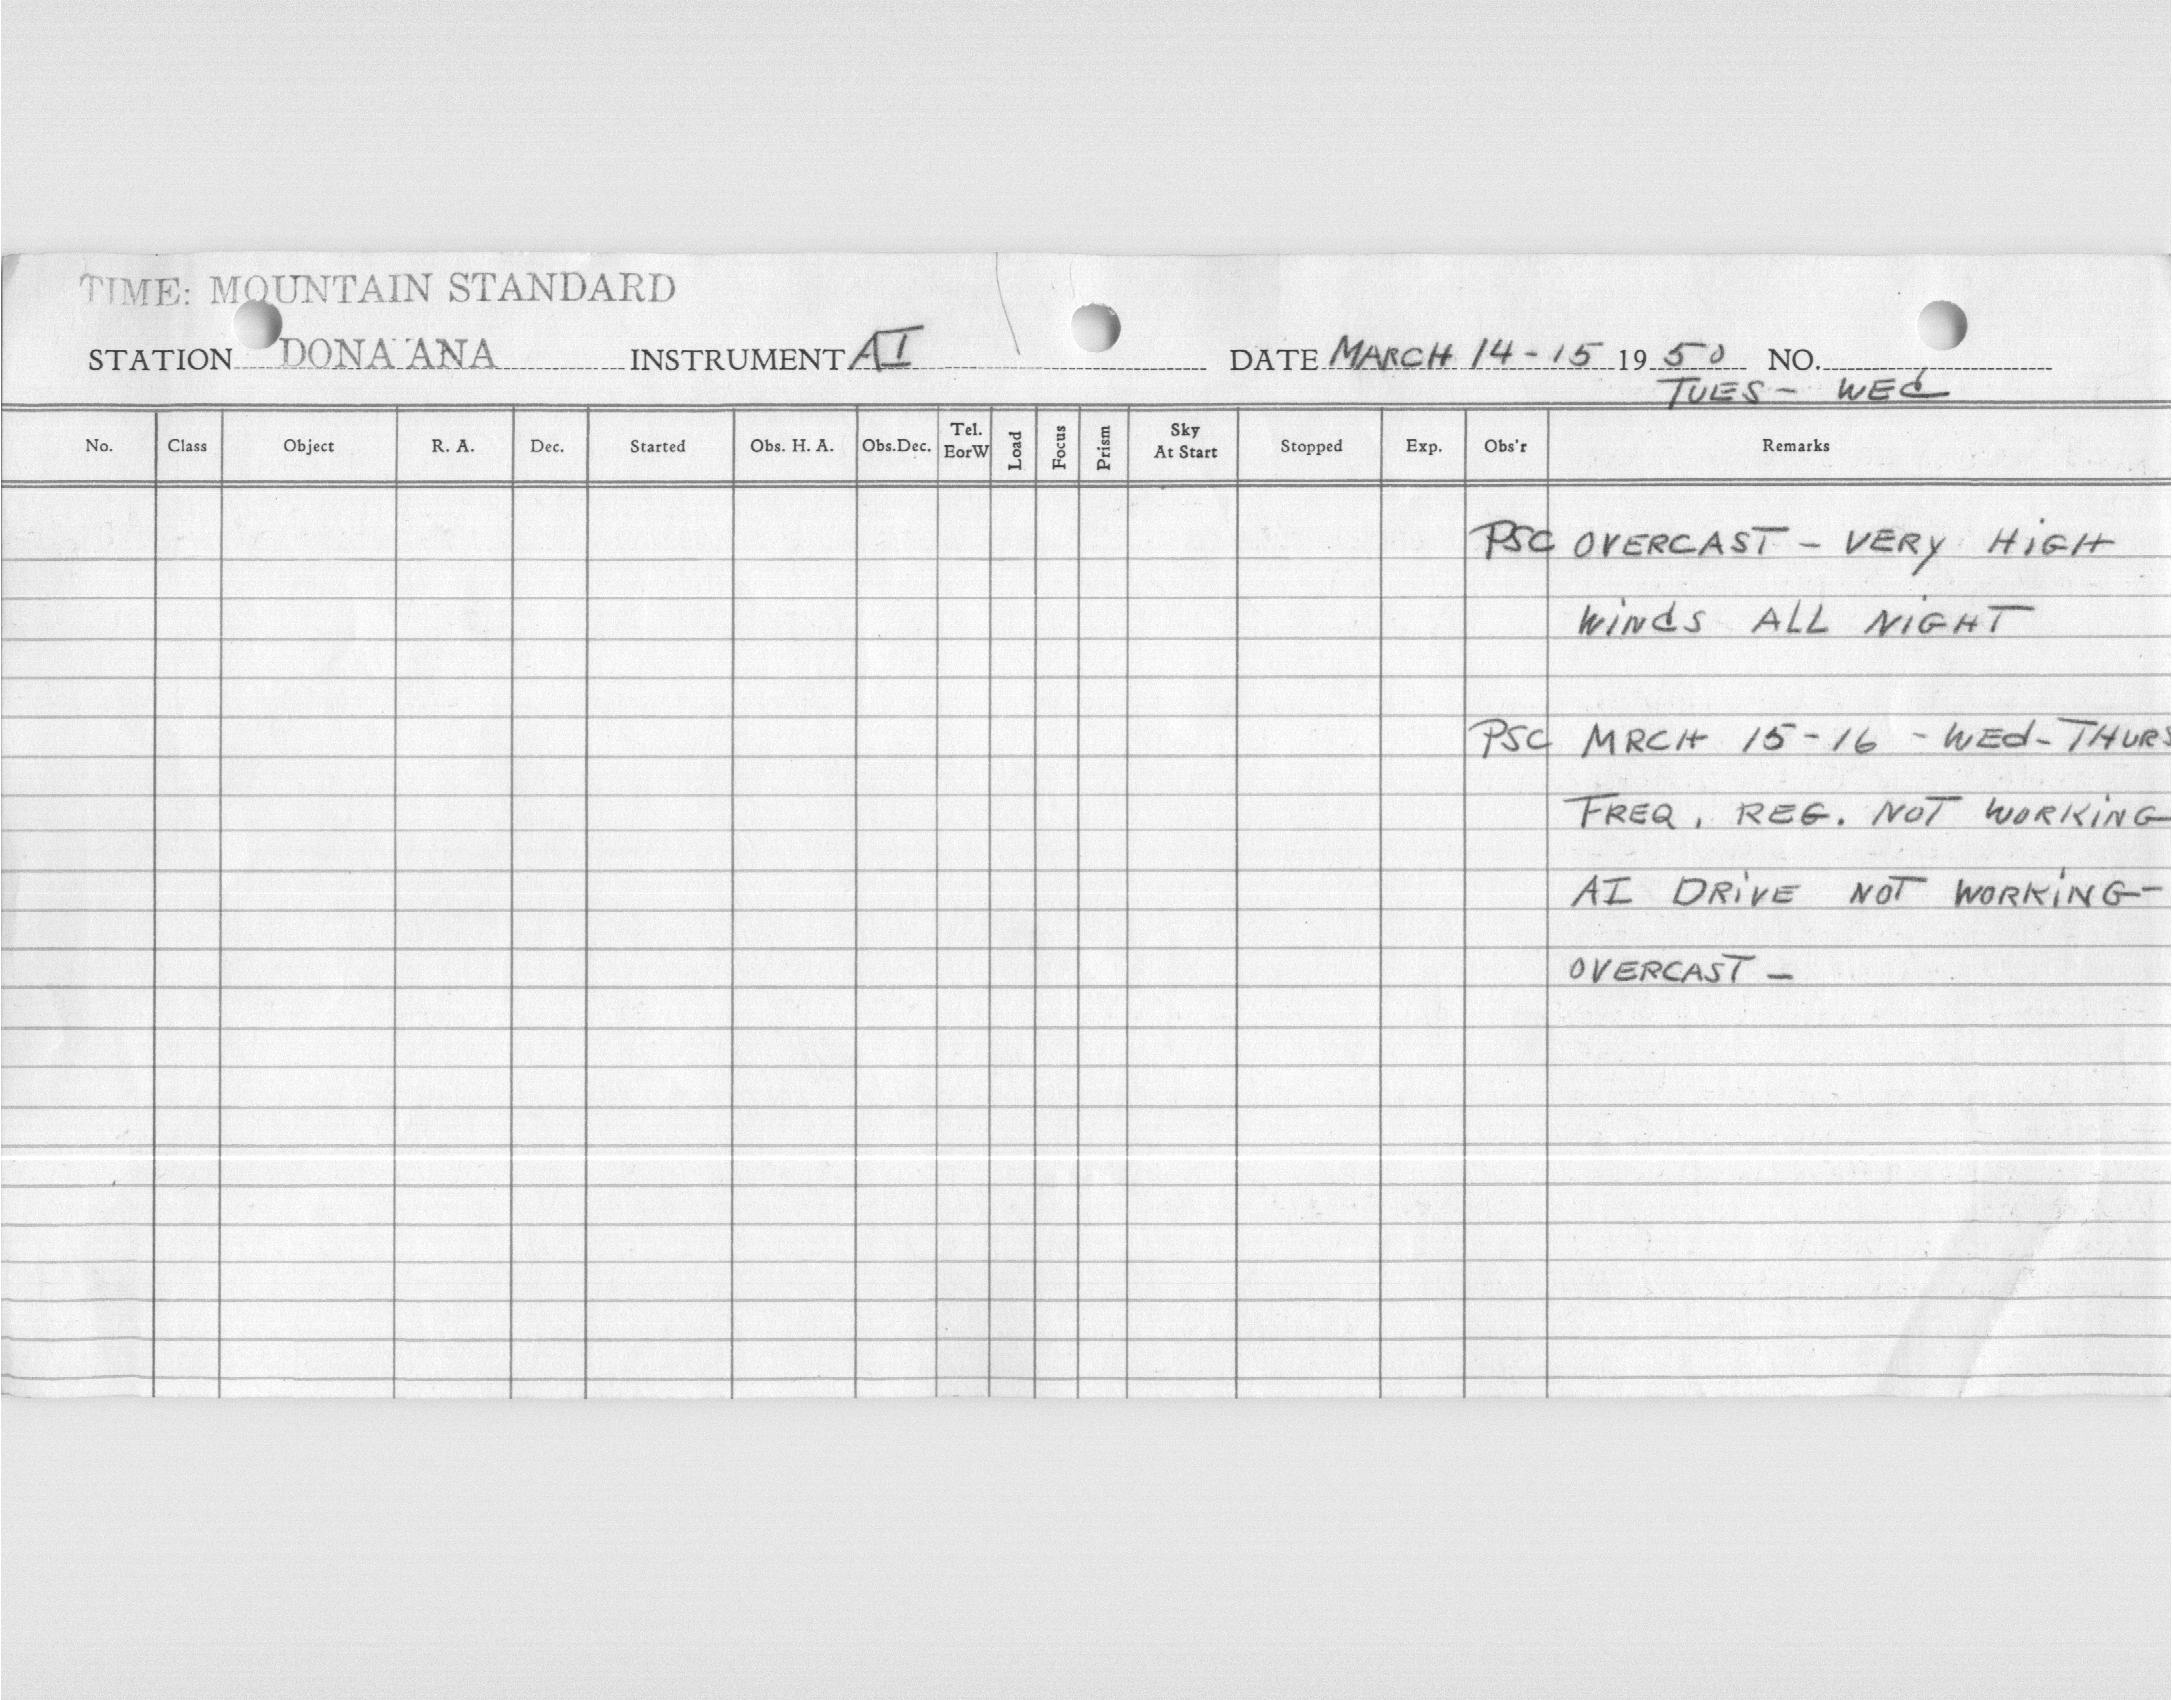 TIME: MOUNTAIN STANDARD
STATION DONA ANA INSTRUMENT AI DATE MARCH 14-15 1950 NO.
TUES - WEd
No. Class Object R. A. Dec. Started Obs. H. A. Obs.Dec. Tel. EorW Load Focus Prism Sky At Start Stopped Exp. Obs'r Remarks
PSC OVERCAST - VERY HiGH
WiNdS ALL NiGHT
PSC MRCH 15-16 - WEd-THURS
FREQ. REG. NOT WORKiNG
AI DRiVE NOT WORKiNG-
OVERCAST -